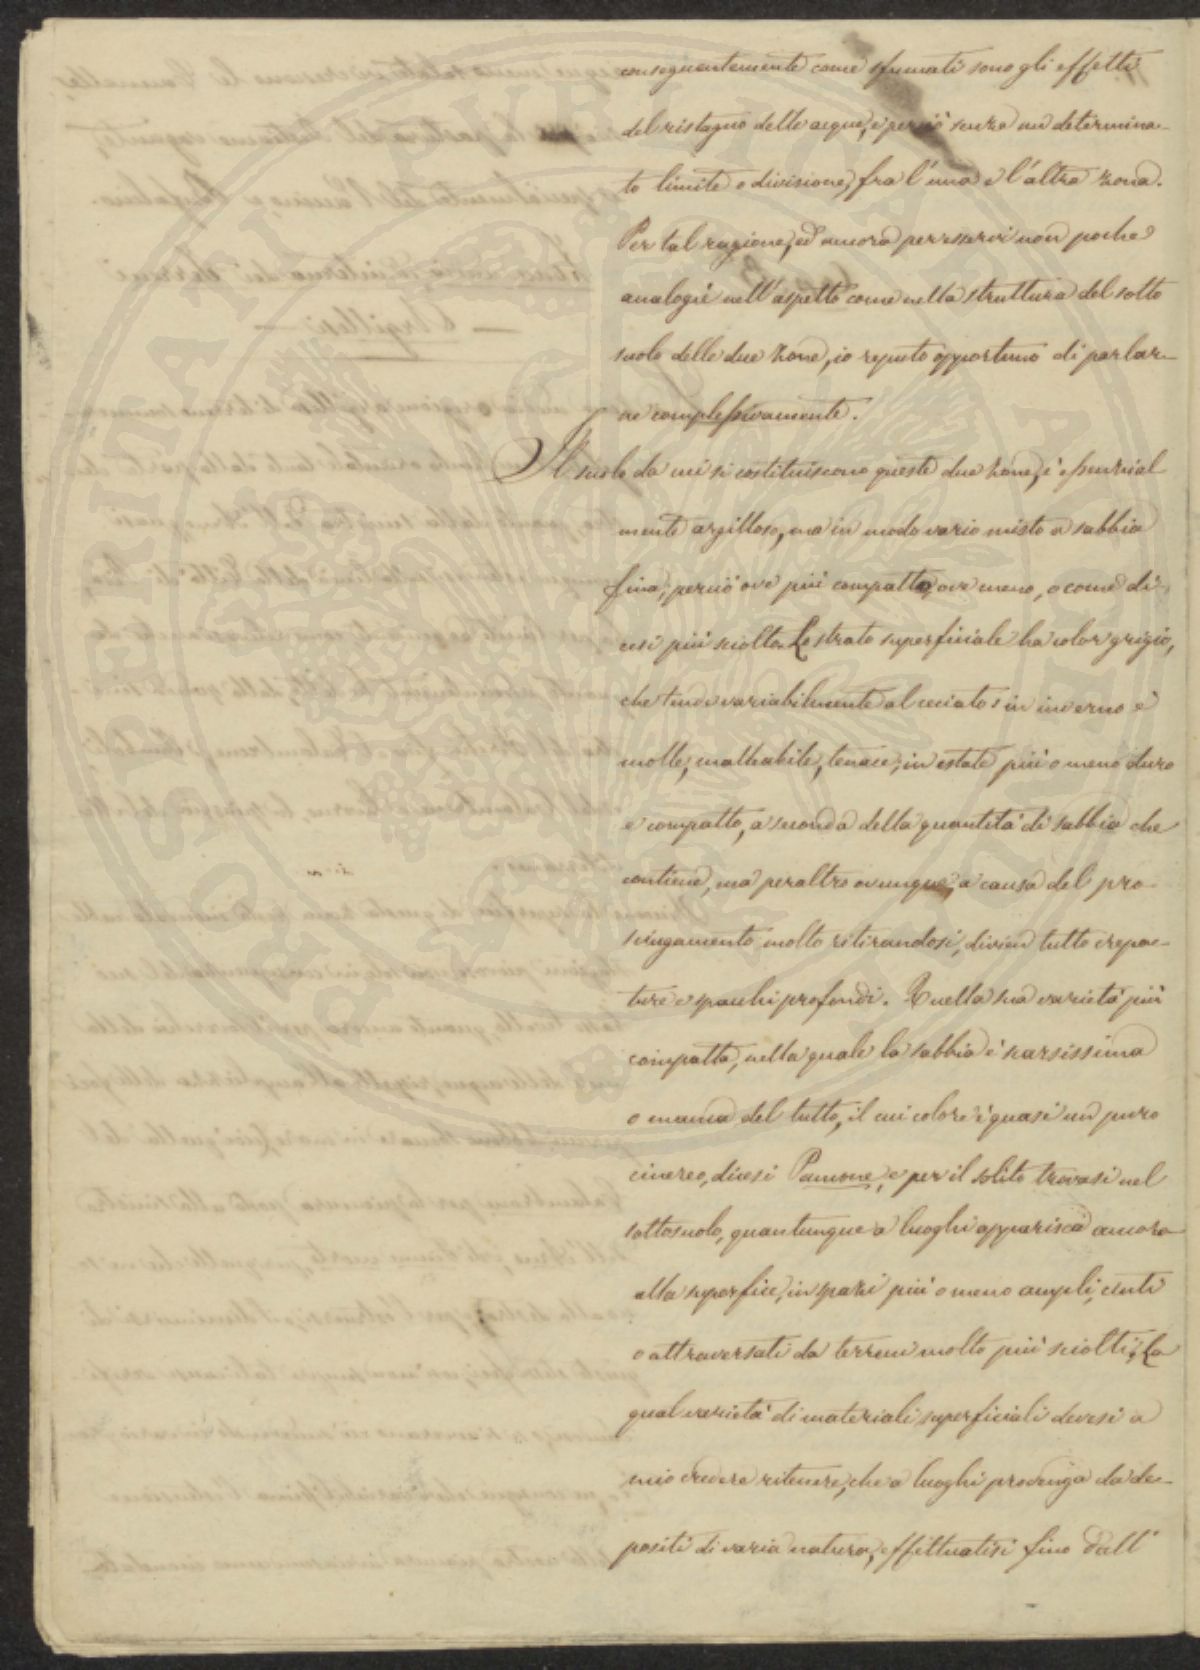 conseguentemente come sfumati sono gli effetti
del ristagno delle acque, e perciò senza un determina-
to limite o divisione, fra l'una e l'altra zona.
Per tal ragione, ed ancora per esservi non poche
analogie nell'aspetto come nella struttura del sotto
suolo delle due zone, io reputo opportuno di parlar-
ne complessivamente.
Il suolo da cui si costituiscono queste due zone, è essenzial
mente argilloso, ma in modo vario misto a sabbia
fina; perciò ove più compatto, ove meno, o come di-
cesi più sciolto. Lo strato superficiale ha color grigio,
che tende variabilmente al ceciato: in inverno è
molle, malleabile, tenace; in estate più o meno duro
e compatto, a seconda della quantità di sabbia che
contiene, ma peraltro ovunque, a causa del pro-
sciugamento molto ritirandosi, divien tutto crepac-
ture e spacchi profondi. Quella sua varietà più
compatta, nella quale la sabbia è scarsissima
o manca del tutto, il cui colore è quasi un puro
cinereo, dicesi Pancone, e per il solito trovasi nel
sottosuolo, quantunque a luoghi apparisca ancora
alla superfice, in spazi più o meno ampli, cinti
o attraversati da terreni molto più sciolti; La
qual varietà di materiali superficiali devesi a
mio credere ritenere, che a luoghi provenga da de-
positi di varia natura, effettuatisi fino dall'